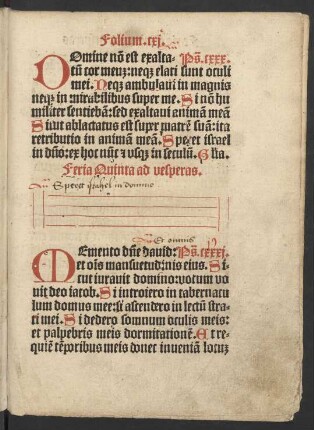 Folium.cxj.
Domine nõ est exalta- Ps̃. cxxx.
tũ cor meuz: neq̃ elati sunt oculi
mei. Neq̃ ambulaui in magnis
neq̃ in mirabilibus super me. Si nõ hu
militer sentiebã: sed exaltaui animam meã
Sicut ablactatus est super matrẽ suã: ita
retributio in animam meã. Speret israel
in dño: ex hoc nũc ⁊ vsq̃ in seculũ. Glia.
Feria Quinta ad vesperas.
Speret israhel in domino
Et omnis
Memento dñe dauid: Ps̃. cxxxj.
et oĩs mansuetudinis eius. Si
cut iurauit domino: votum vo
uit deo iacob. Si introiero in tabernacu
lum domus mee: si ascendero in lectũ stra
ti mei. Si dedero somnum oculis meis:
et palpebris meis dormitationẽ. Et re-
quiẽ tẽporibus meis donec inueniã locuz